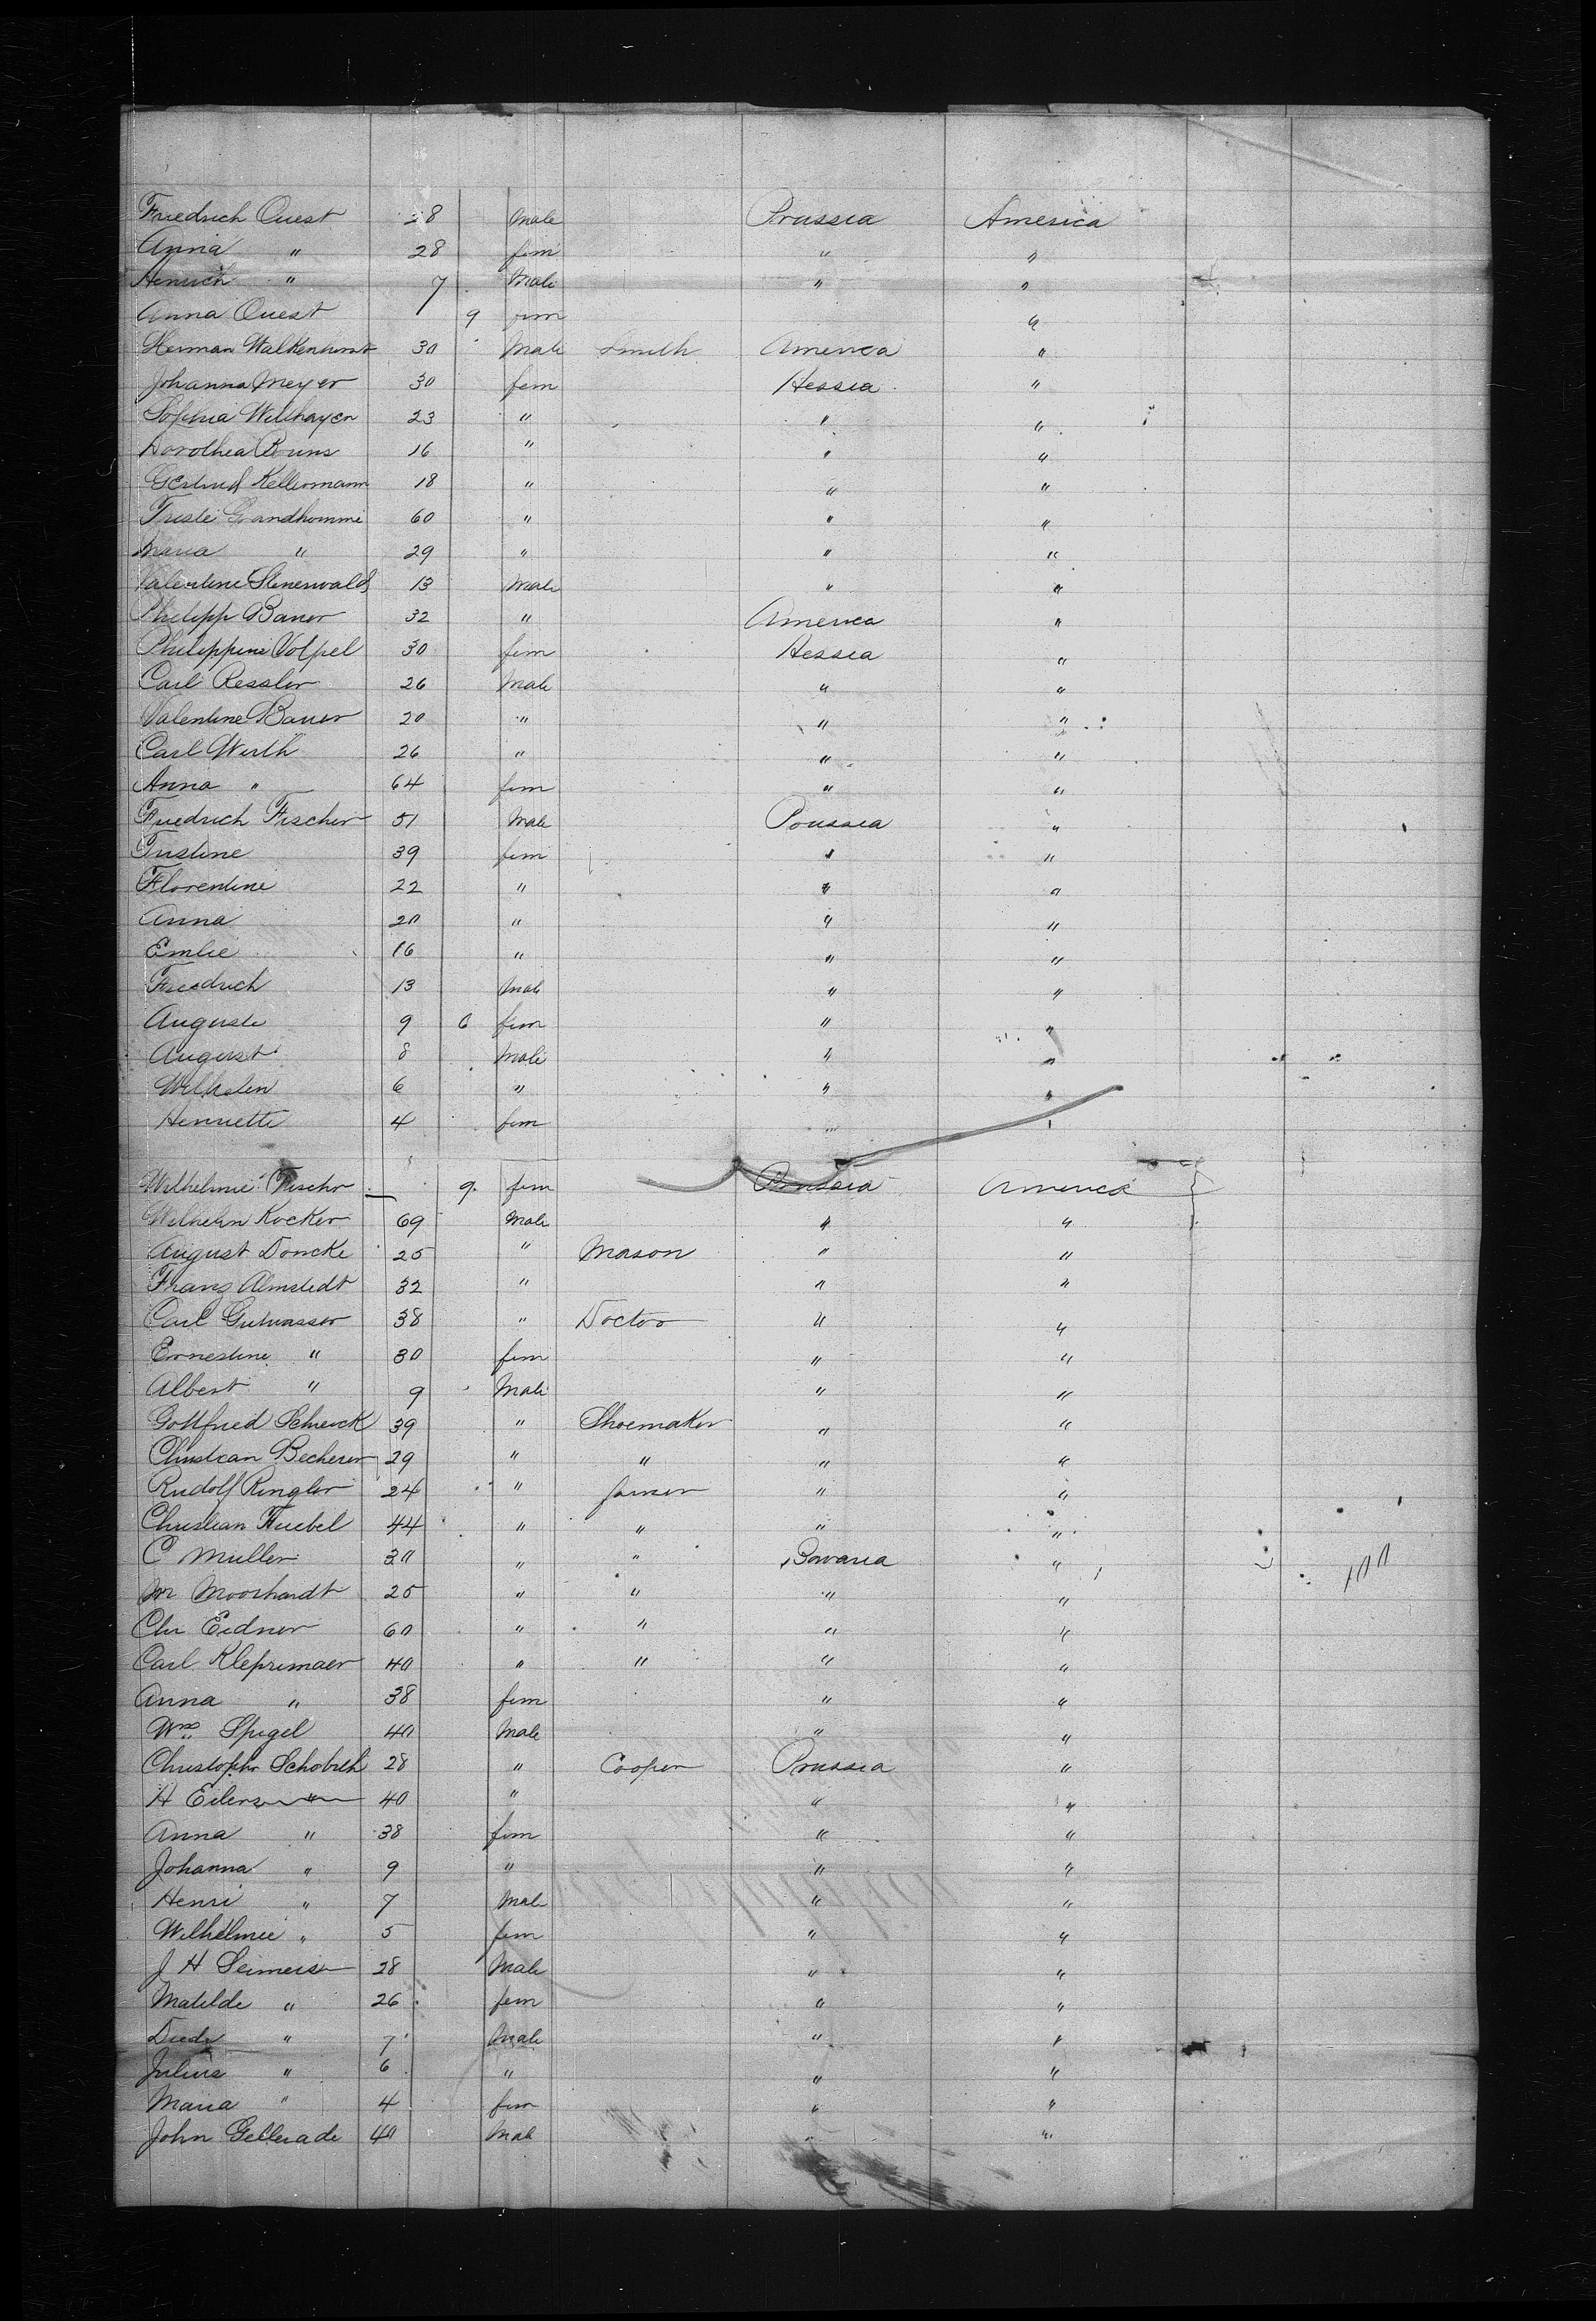 Friedrich Quest 28 Male Prussia America
Anna " 28 fem " "
Heinrich " 7 Male " "
Anna Quest 9 fem "
Herman Walkenhorst 30 Male Smith America "
Johanna Meyer 30 fem Hessia "
Sophia Wilhayer 23 " " "
Dorothea Bruns 16 " " "
Gertrud Kellermann 18 " " "
Grandhomme 60 " " "
Maria " 29 " " "
Valentine 13 Male " "
Philipp Bauer 32 " America "
Philippine Volpel 30 fem Hessia "
Carl Ressler 26 Male " "
Valentine Bauer 20 " " "
Carl Wirth 26 " " "
Anna " 64 fem " "
Friedrich Fischer 51 Male Prussia "
Justine 39 fem " "
Florentine 22 " " "
Anna 20 " " "
Emlie 16 " " "
Friedrich 13 Male " "
Auguste 9 6 fem " "
August 8 Male " "
Wilhelm 6 " " "
Henriette 4 fem " "
Wilhelmie Fischer 9 fem Prussia America
Wilhelm Kocker 69 Male " "
August Doncke 25 " Mason " "
Franz Almstedt 32 " " "
Carl 38 " Doctor " "
Ernestine " 30 fem " "
Albert " 9 Male " "
Gottfried Schenck 39 " Shoemaker " "
Christian Becherer 29 " " " "
Rudolf Ringler 24 " farmer " "
Christian Huebel 44 " " " "
C Muller 30 " " Bavaria " 100
Moorhardt 25 " " " "
Chr Eidner 60 " " " "
Carl 40 " " " "
Anna " 38 fem " "
Wm Spigel 40 Male " "
Christoph 28 " Cooper Prussia "
H Eilers 40 " " "
Anna " 38 fem " "
Johanna " 9 " " "
Henri " 7 Male " "
Wilhelmie " 5 fem " "
J H 28 Male " "
Matilde " 26 fem " "
Died " 7 Male " "
Julius " 6 " " "
Maria " 4 fem " "
John Gellerade 40 Male " "